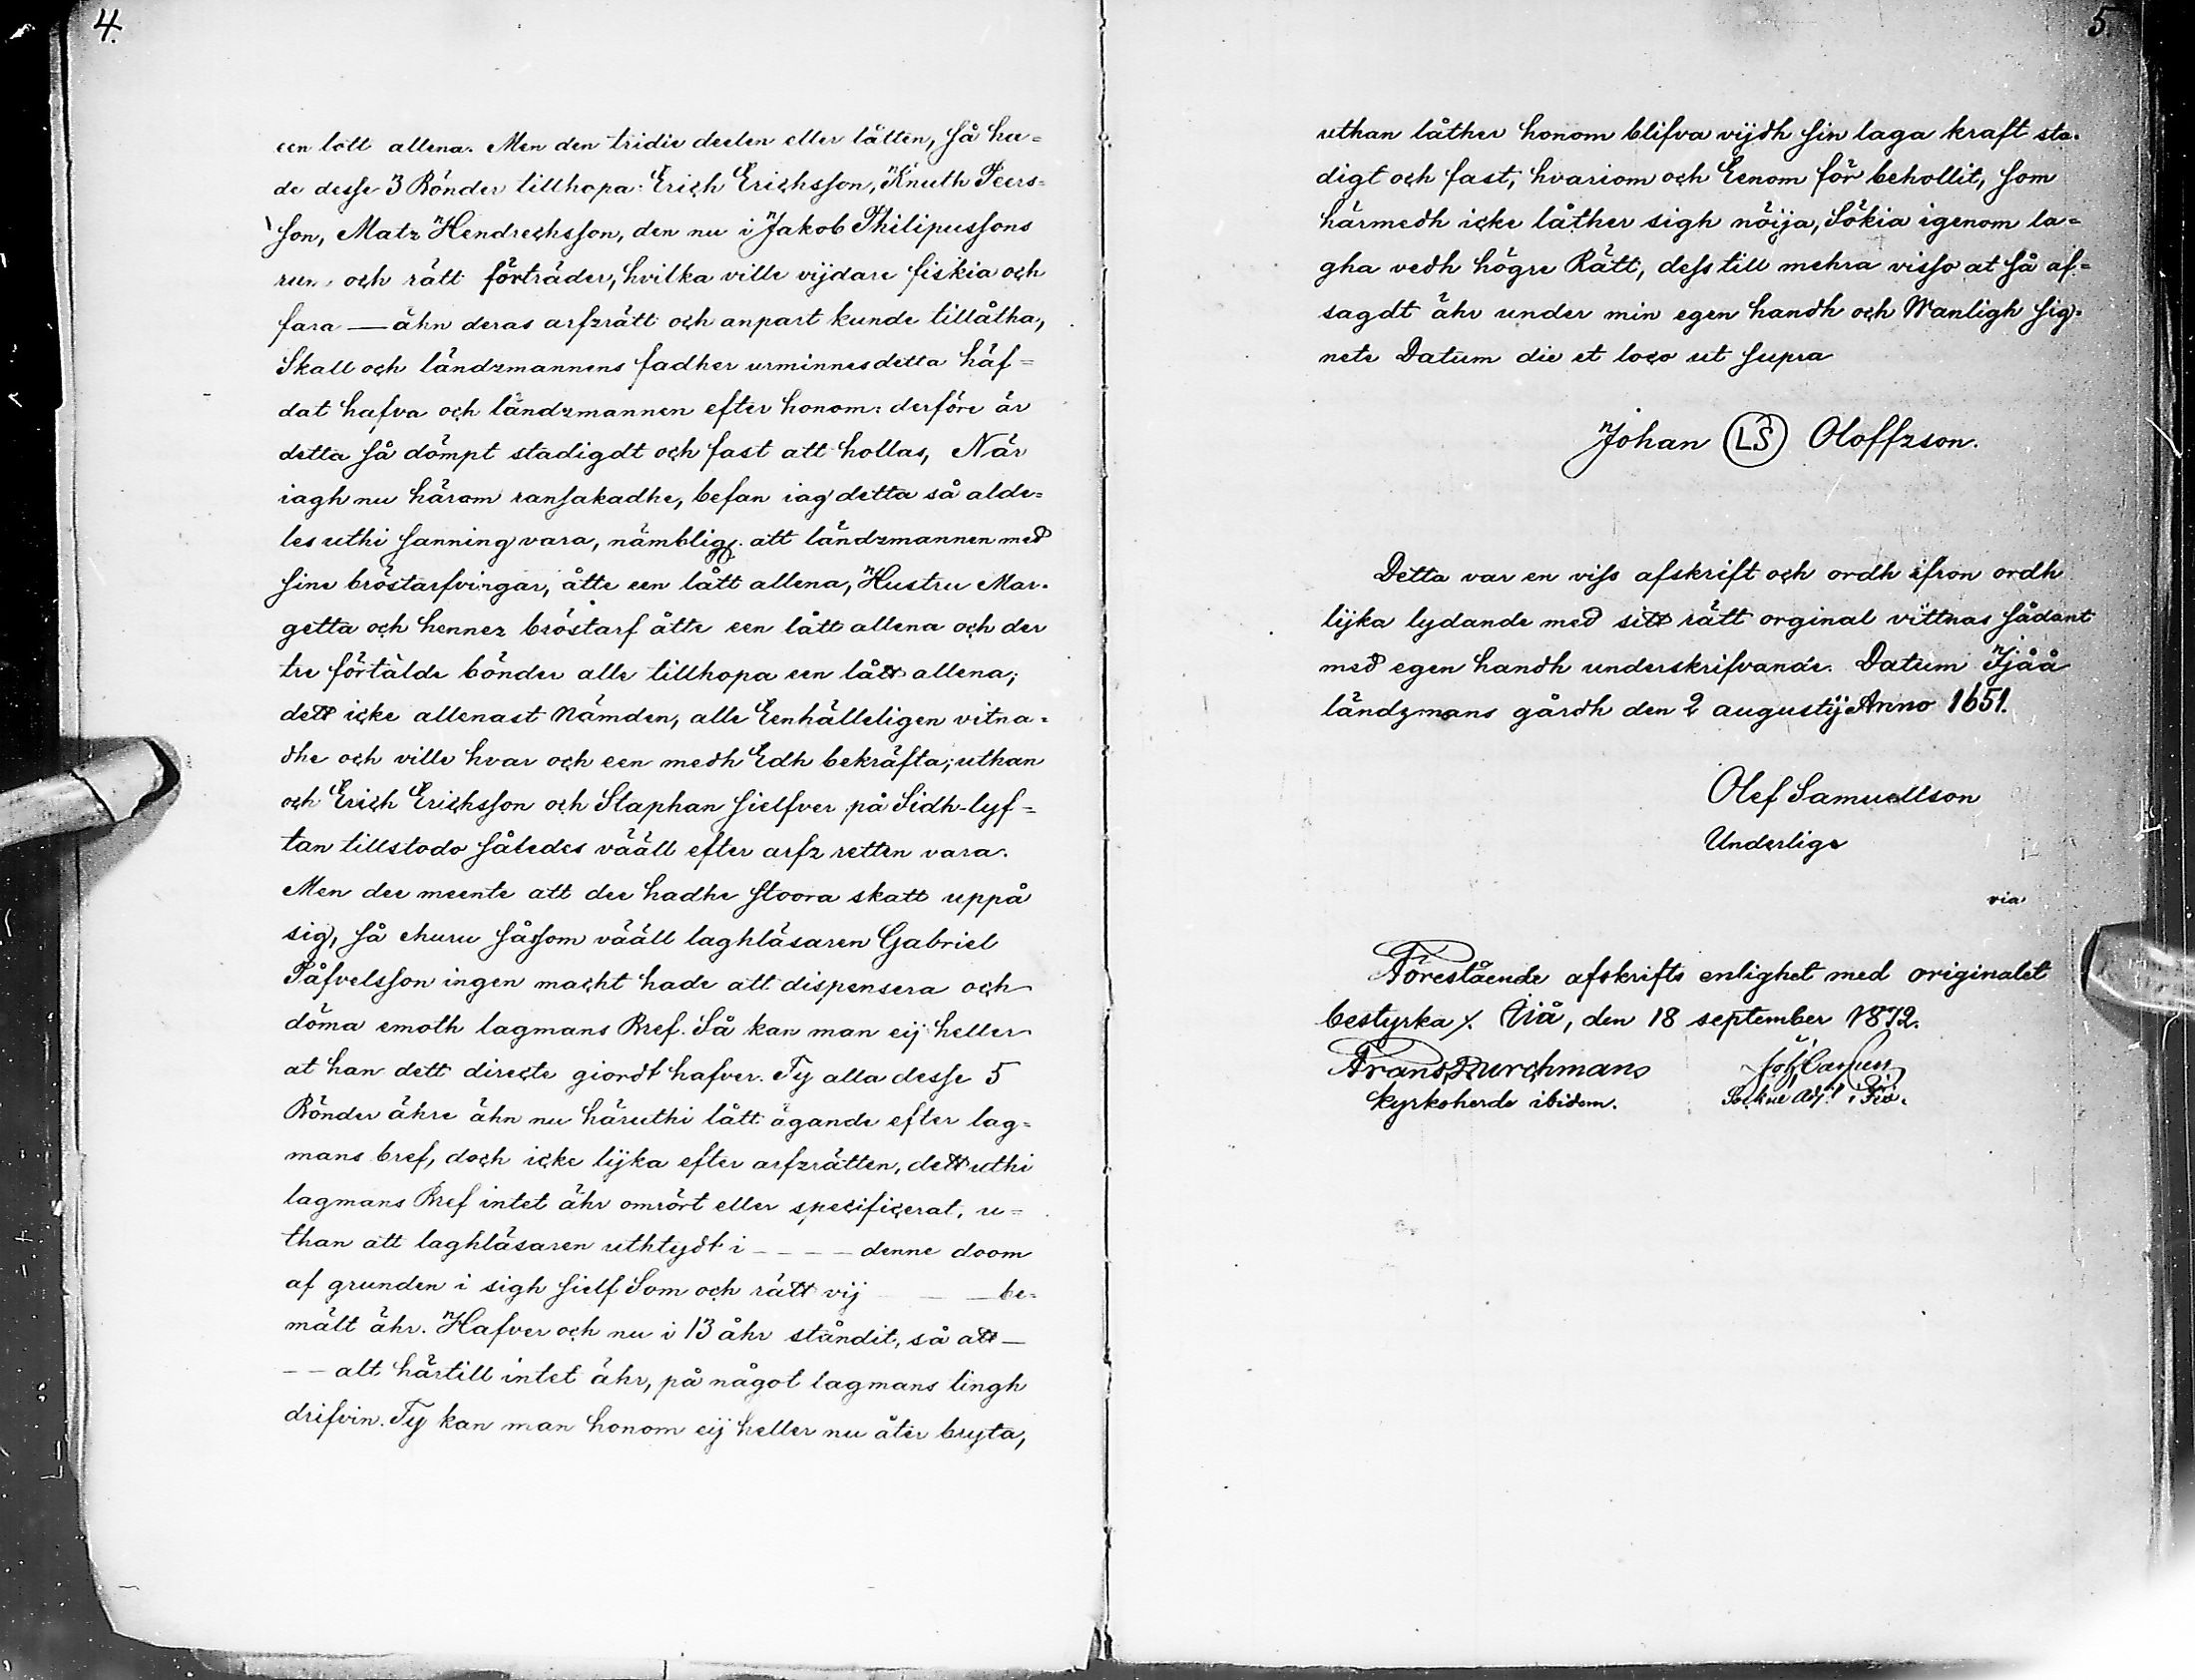 4.
een lott allena. Men den tridie deelen eller lätten, så ha-
de desse 3 Bönder tillhopa: Erich Erichsson, Knuth Peers-
son, Matz Hendrechsson, den nu i Jakob Philipussons
rum och rätt förträder, hvilka ville vijdare fiskia och
fara — ähn deras arfzrätt och anpart kunde tillåtha,
Skall och ländzmannens fadher urminnes detta häf-
dat hafva och ländzmannen efter honom: derföre är
detta så dömpt stadigdt och fast att hollas, När
iagh nu härom ransakadhe, befan iag detta så alde-
les uthi sanning vara, nämblig. att ländzmannen med
sine bröstarfvingar, åtte een lått allena, Hustru Mar-
getta och hennez bröstarf åtte een lått allena och der
tre förtälde bönder alle tillhopa een lått allena;
dett icke allenast Nämden, alle Eenhälleligen vitna-
dhe och ville hvar och een medh Edh bekräfta; uthan
och Erich Erichsson och Staphan sielfver på Sidh-lyf-
tan tillstodo således vääll efter arfz retten vara.
Men dee meente att dee hadhe stoora skatt uppå
sig, så ehuru såssom vääll laghläsaren Gabriel
Påfvelsson ingen macht hade att dispensera och
döma emoth lagmans Bref. Så kan man eij heller
at han dett directe giordt hafver. Ty alla desse 5
Bönder ähre ähn nu häruthi lått ägande efter lag-
mans bref, doch icke lijka efter arfzrätten, dett uthi
lagmans Bref intet ähr omrört eller specificerat, u-
than att laghläsaren uthtydt i - - - - denne doom
af grunden i sigh sielf Som och rätt vij — — be-
mält ähr. Hafver och nu i 13 åhr ståndit, så att —
- - alt härtill intet ähr, på något lagmans tingh
drifvin. Ty kan man honom eij heller nu åter bryta,
5.
uthan låther honom blifva vijdh sin laga kraft sta-
digt och fast; hvariom och Eenom för behollit, som
härmedh icke låther sigh nöija, Sökia igenom la-
gha vedh högre Rätt, dess till mehra visso at så af-
sagdt ähr under min egen handh och Wanligh sig-
nete Datum die et loco ut supra
Johan LS Oloffzson.
Detta var en viss afskrift och ordh ifron ordh
lijka lydande med sitt rätt orginal vittnas sådant
med egen handh underskrifvande. Datum Ijåå
ländzmans gårdh den 2 augustij Anno 1651.
Olef Samuellson
Underlige
via
Förestående afskrifts enlighet med originalet
bestyrka /. Iiå, den 18 september 1872.
Frans Durchmans
kyrkoherde ibidem.